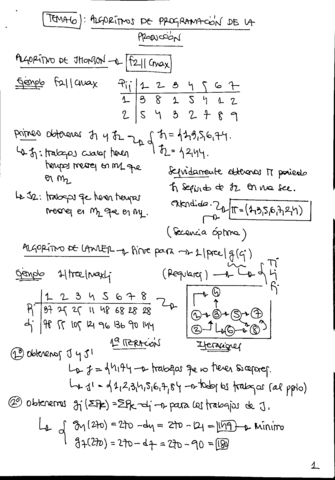 TEMA 6: ALGORITMOS DE PROGRAMACIÓN DE LA
PRODUCCIÓN
ALGORITMO DE JHONSON → F2||Cmax
Ejemplo F2||Cmax
Pij | 1 2 3 4 5 6 7
1 | 3 8 1 5 4 1 2
2 | 5 4 3 2 7 8 9
Primero obtenemos J1 y J2 → { J1 = {1,3,5,6,7}.
J2 = {2,4}.
↳ J1: trabajos cuales tienen
tiempos menores en M1 que
en M2
↳ J2: trabajos que tienen tiempos
menores en M2 que
en M1.
Seguidamente obtenemos Π poniendo
J1 seguido de J2 en una sec.
extendida. Π = (1,3,5,6,7,2,4)
(Secuencia óptima)
ALGORITMO DE LAWLER → Sirve para → 1|prec|g(Cj)
(Regulares) → { Tj
Lj
Fj
Ejemplo 1|prec|maxLj
| 1 2 3 4 5 6 7 8
Pj | 37 25 25 11 48 68 28 28
dj | 78 55 105 121 96 136 90 144
4
1 3 5 7
2 6 8
1ª ITERACIÓN
Iteraciones
1º obtenemos J y J'
↳ J = {4,7} → trabajos que no tienen sucesores.
↳ J' = {1,2,3,4,5,6,7,8} → todos los trabajos (al ppio)
2º obtenemos gj(ΣPk) = ΣPk − dj → para los trabajos de J.
↳ { g4(270) = 270 − d4 = 270 − 121 = 149 → Mínimo
g7(270) = 270 − d7 = 270 − 90 = 180
1